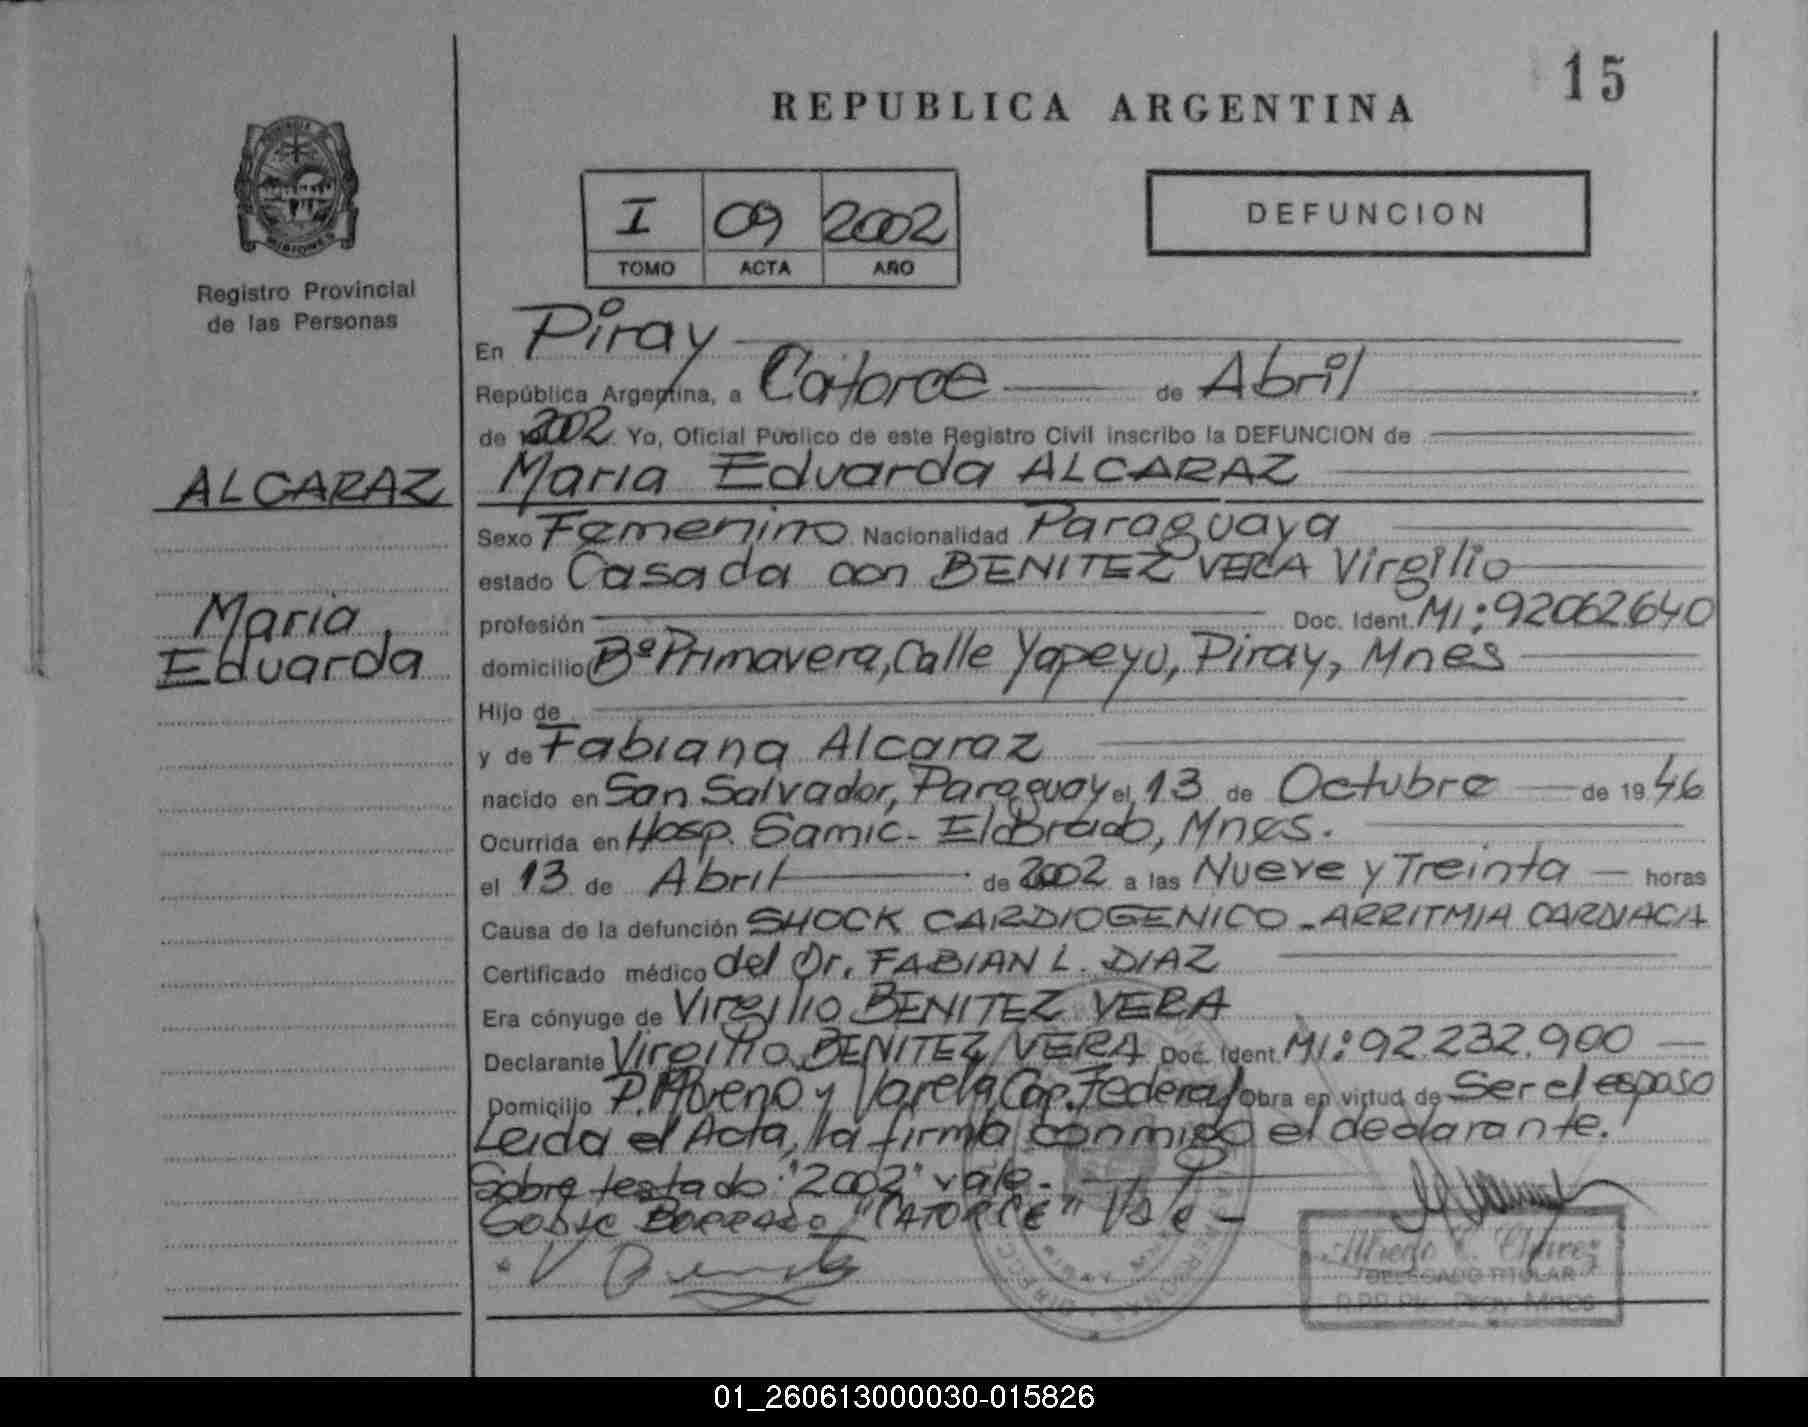 15
REPUBLICA ARGENTINA
I 09 2002
TOMO ACTA AÑO
DEFUNCION
MISIONES
Registro Provincial
de las Personas
En Piray
República Argentina, a Catorce de Abril
de 2002 Yo, Oficial Público de este Registro Civil inscribo la DEFUNCION de
ALCARAZ
Maria Eduarda ALCARAZ
Sexo Femenino Nacionalidad Paraguaya
estado Casada con BENITEZ VERA Virgilio
Maria
Eduarda
profesión Doc. Ident. MI: 92062640
domicilio Bº Primavera, Calle Yapeyu, Piray, Mnes
Hijo de
y de Fabiana Alcaraz
nacido en San Salvador, Paraguay el 13 de Octubre de 19 46
Ocurrida en Hosp. Samic - Eldorado, Mnes.
el 13 de Abril de 2002 a las Nueve y Treinta horas
Causa de la defunción SHOCK CARDIOGENICO - ARRITMIA CARDIACA
Certificado médico del Dr. FABIAN L. DIAZ
Era cónyuge de Virgilio BENITEZ VERA
Declarante Virgilio BENITEZ VERA Doc. Ident. MI: 92.232.900
Domicilio P. Moreno y Varela, Cap. Federal Obra en virtud de Ser el esposo
Leida el Acta, la firma conmigo el declarante.
Sobre testado: "2002" vale.-
Sobre Borrado "CATORCE" Vale -
DELEGADO TITULAR
01_260613000030-015826